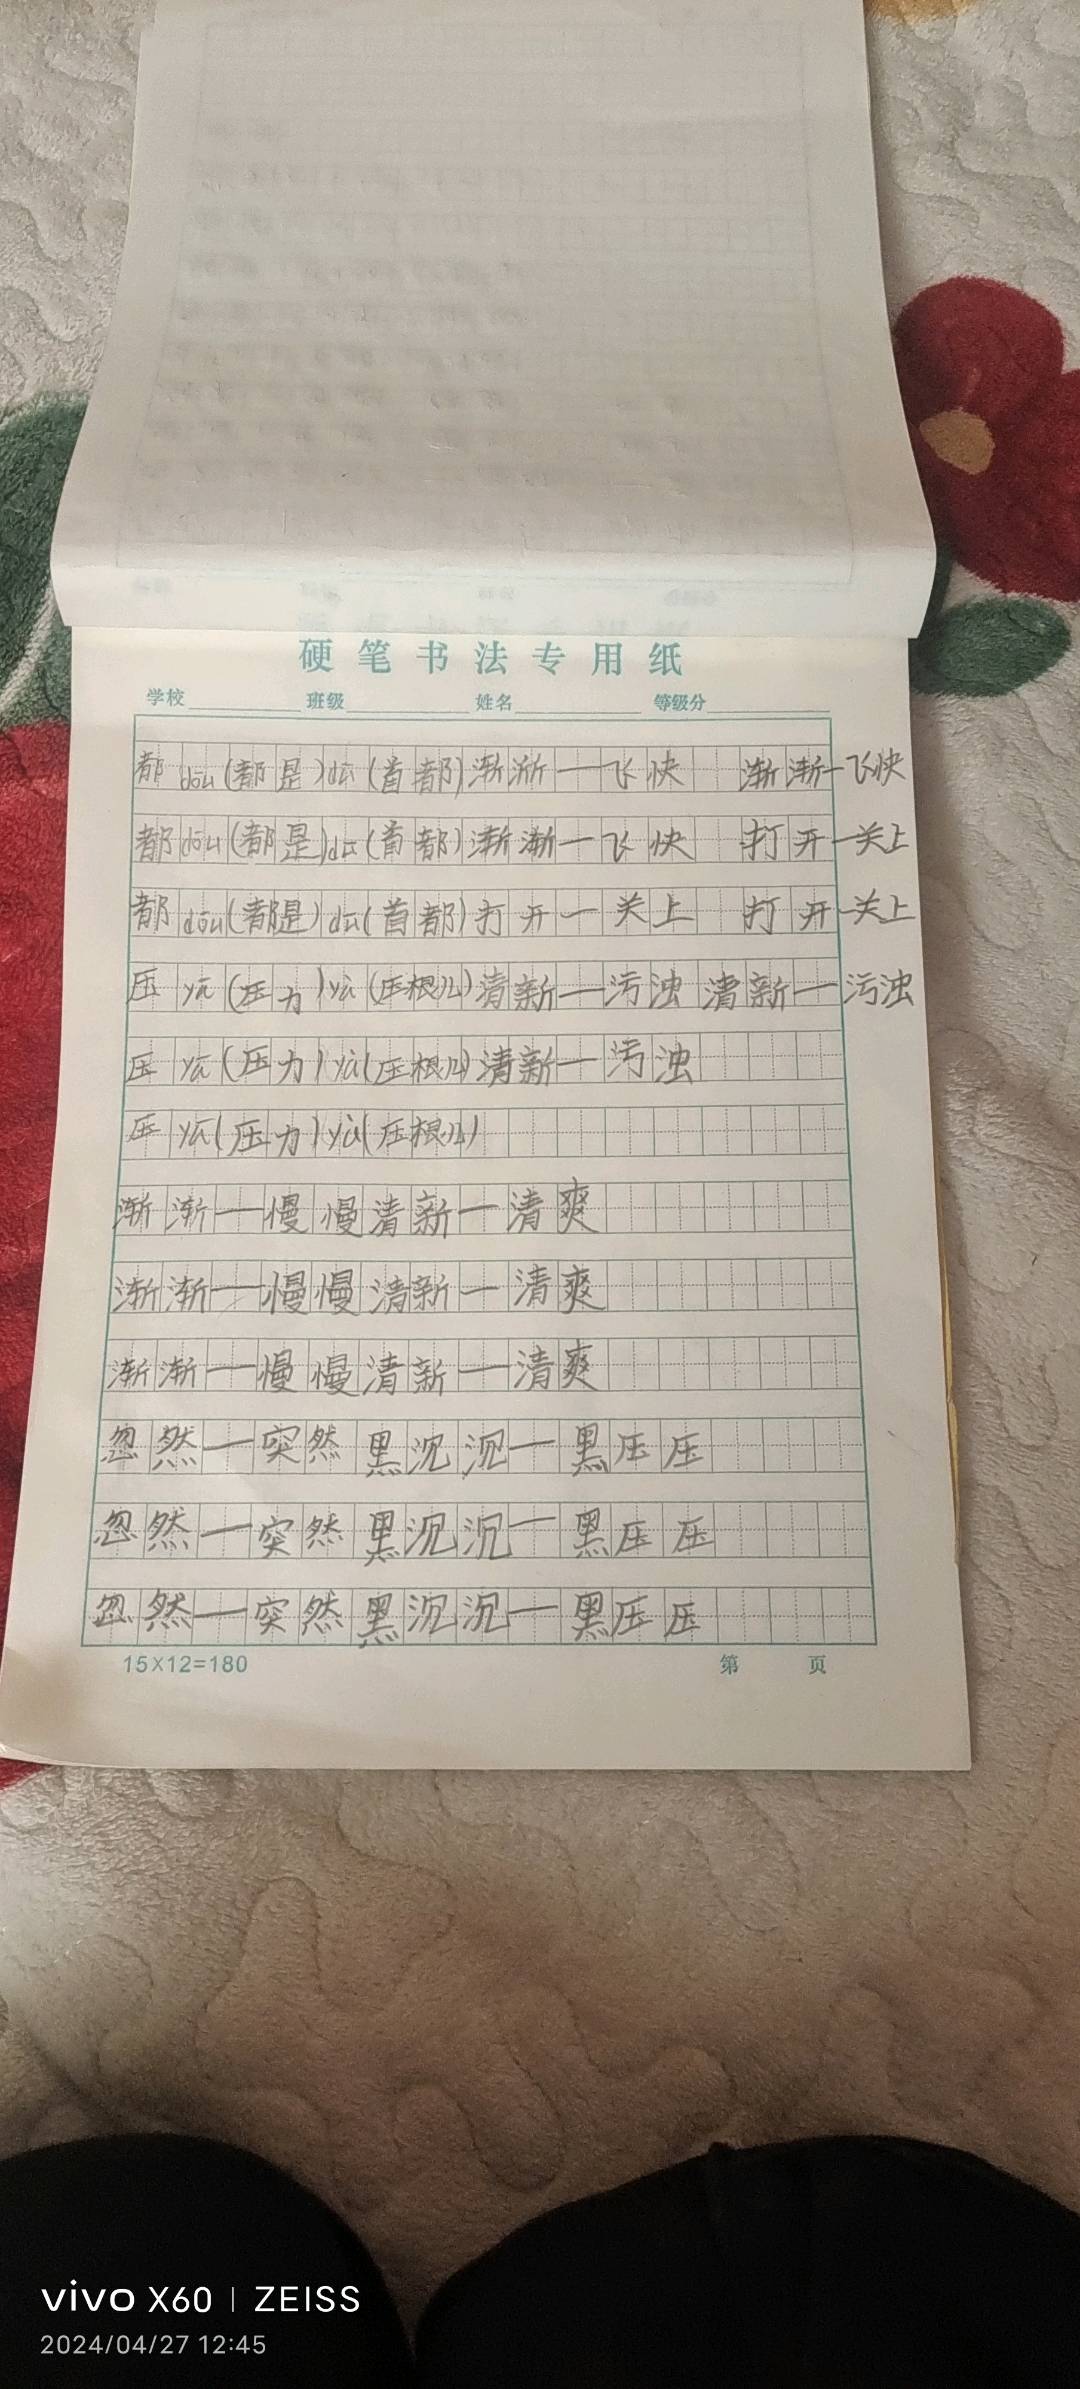 硬笔书法专用纸
学校 班级 姓名 等级分
都 dōu (都是) dū (首都) 渐渐一飞快 渐渐一飞快
都 dōu (都是) dū (首都) 渐渐一飞快 打开一关上
都 dōu (都是) dū (首都) 打开一关上 打开一关上
压 yā (压力) yà (压根儿) 清新一污浊 清新一污浊
压 yā (压力) yà (压根儿) 清新一污浊
压 yā (压力) yà (压根儿)
渐渐一慢慢 清新一清爽
渐渐一慢慢 清新一清爽
渐渐一慢慢 清新一清爽
忽然一突然 黑沉沉一黑压压
忽然一突然 黑沉沉一黑压压
忽然一突然 黑沉沉一黑压压
15×12=180 第 页
vivo X60 | ZEISS
2024/04/27 12:45